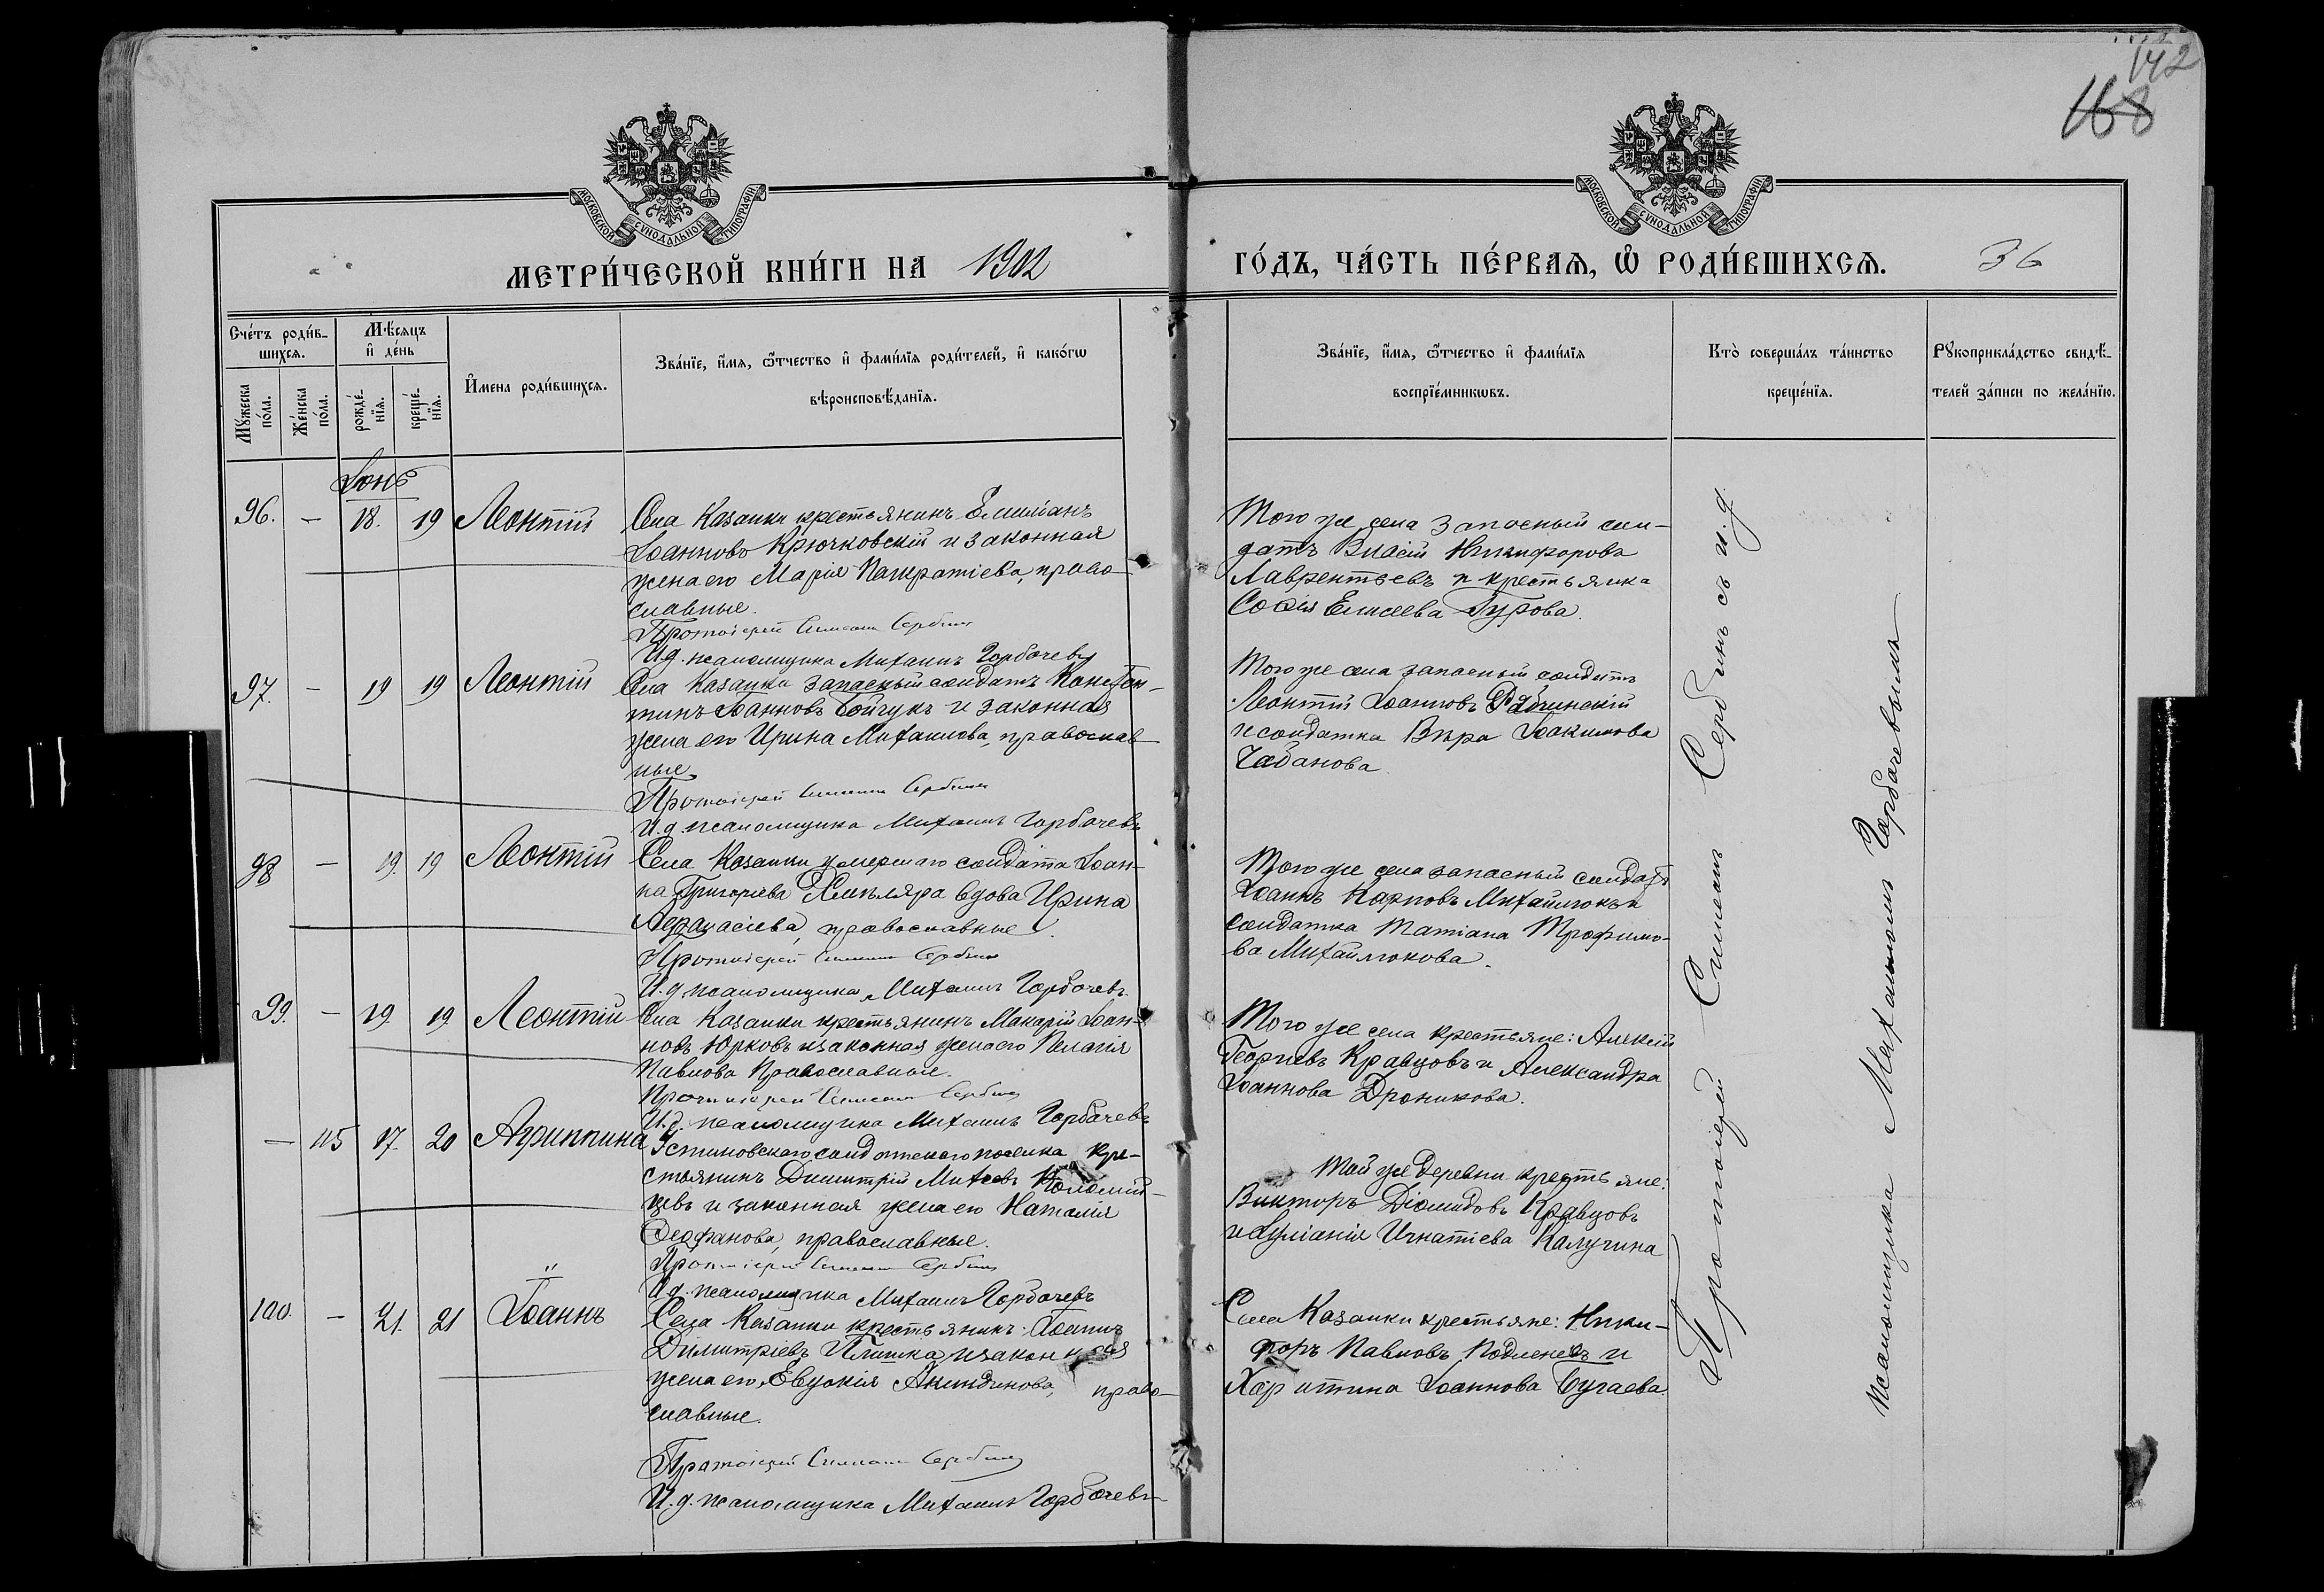 142
168
МОСКОВСКОЙ СѴНОДАЛЬНОЙ ТИПОГРАФІИ
МОСКОВСКОЙ СѴНОДАЛЬНОЙ ТИПОГРАФІИ
МЕТРИ́ЧЕСКОЙ КНИ́ГИ НА 1902
ГО́ДЪ, ЧА́СТЬ ПЕ́РВАѦ, Ѡ РОДИ́ВШИХСѦ. 36
Сче́тъ роди́в-
шихсѧ.
Мꙋжеска по́ла.
Же́нска по́ла.
Мѣ́сѧцъ
и де́нь
рожде́-
нїѧ.
креще́-
нїѧ.
И́мена роди́вшихсѧ.
Зва́нїе, и́мѧ, ѻ́тчество и фами́лїѧ роди́телей, и како́гѡ
вѣроисповѣ́данїѧ.
Зва́нїе, и́мѧ, ѻ́тчество и фами́лїѧ
воспрїе́мникѡвъ.
Кто̀ соверша́лъ та́инство
креще́нїѧ.
Рꙋкоприкла́дство свидѣ́-
телей за́писи по жела́нїю.
Іюнь
96. — 18. 19 Леонтій
Села Казанки крестьянинъ Емиліанъ
Іоанновъ Крючковскій и законная
жена его Марія Панкратіева, право-
славные.
Протоіерей Симеонъ Сербинъ
И.д. псаломщика Михаилъ Горбачевъ
Того же села запасный сол-
датъ Власій Никифоровъ
Лаврентьевъ и крестьянка
Софія Елисеева Гурова.
97. — 19 19 Леонтій
Села Казанки запасный солдатъ Констан-
тинъ Іоанновъ Бойчукъ и законная
жена его Ирина Михаилова, православ-
ные
Протоіерей Симеонъ Сербинъ
И.д. псаломщика Михаилъ Горбачевъ
Того же села запасный солдатъ
Леонтій Іоанновъ
и солдатка Вѣра Іоакимова
Чабанова
98 — 19. 19 Леонтій
Села Казанки умершаго солдата Іоан-
на Григорьева вдова Ирина
Аѳанасіева, православные.
Протоіерей Симеонъ Сербинъ
И.д. псаломщика Михаилъ Горбачевъ.
Того же села запасный солдатъ
Іоаннъ Карповъ Михайлюкъ и
солдатка Татіана Трофимо-
ва Михайлюкова.
99. — 19. 19 Леонтій
Села Казанки крестьянинъ Макарій Іоан-
новъ Юрковъ и законная жена его Пелагія
Павлова Православные.
Протоіерей Симеонъ Сербинъ
И.д. псаломщика Михаилъ Горбачевъ
Того же села крестьяне: Алексій
Георгіевъ Кравцовъ и Александра
Іоаннова Дроникова.
— 115 17. 20 Агриппина
Устиновскаго солдатскаго поселка кре-
стьянинъ Димитрій Михеевъ Коломій-
цевъ и законная жена его Наталія
Ѳеофанова, православные.
Протоіерей Симеонъ Сербинъ
И.д. псаломщика Михаилъ Горбачевъ
Той же деревни крестьяне:
Викторъ Діомидовъ Кравцовъ
и Іуліанія Игнатіева Калугина
100. — 21. 21 Іоаннъ
Села Казанки крестьянинъ Іоаннъ
Димитріевъ и законная
жена его Евдокія Акиндинова, право-
славные.
Протоіерей Симеонъ Сербинъ
И.д. псаломщика Михаилъ Горбачевъ
Села Казанки крестьяне: Ники-
форъ Павловъ и
Харитина Іоаннова Бугаева.
Протоіерей Симеонъ Сербинъ съ и.д.
псаломщика Михаиломъ Горбачевымъ